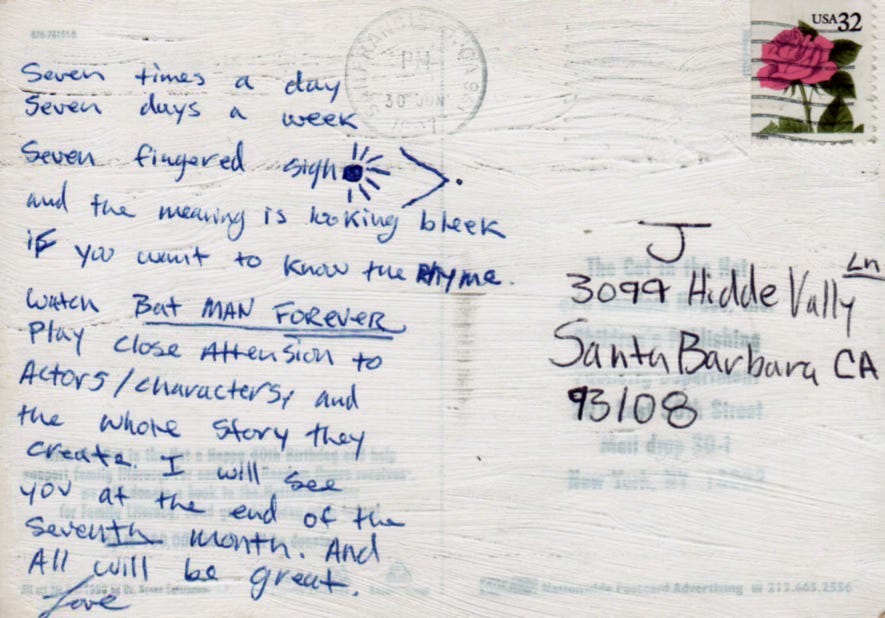 Seven times a day
Seven days a week
Seven fingered sign
and the meaning is looking bleek
if you want to know the Rhyme.
Watch Bat MAN FOREVER
Play close Attension to
Actors/characters, and
the whole story they
create. I will see
you at the end of the
seventh month. And
All will be great.
Love
PM
30 JUN
1997
USA 32
J
3099 Hidde Vally Ln
Santa Barbara CA
93108
The Cat in the Hat
Children's Publishing
Mail drop 30-1
New York, NY
Nationwide Postcard Advertising 212.665.2556